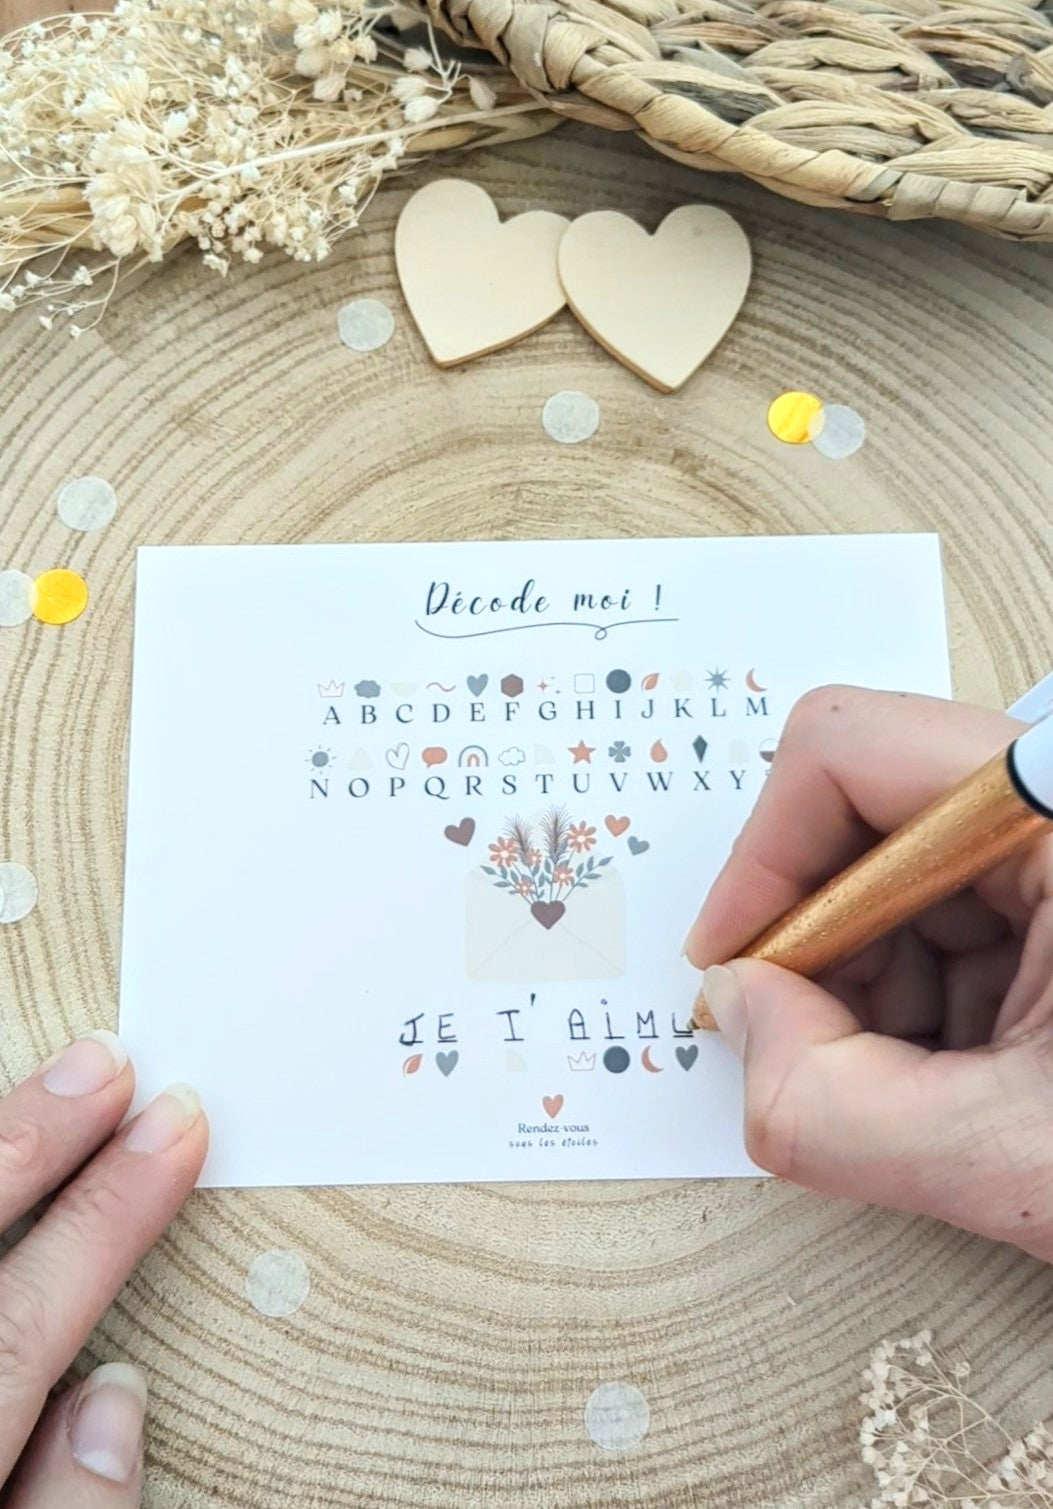 Décode moi !
A B C D E F G H I J K L M
N O P Q R S T U V W X Y
JE T' AiM
Rendez-vous
sous les étoiles